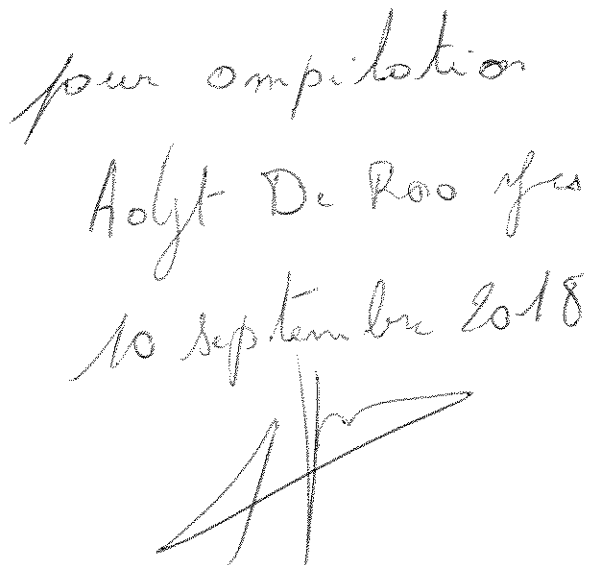 pour ompilation
Adjt De Roo Yves
10 septembre 2018